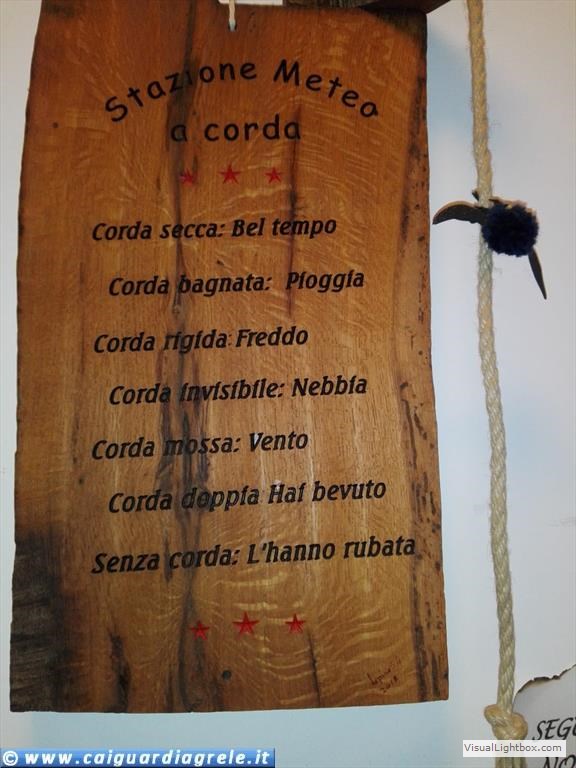 Stazione Meteo
a corda
Corda secca: Bel tempo
Corda bagnata: Pioggia
Corda rigida: Freddo
Corda invisibile: Nebbia
Corda mossa: Vento
Corda doppia Hai bevuto
Senza corda: L'hanno rubata
2018
SEGU
NO
VisualLightbox.com
© www.caiguardiagrele.it